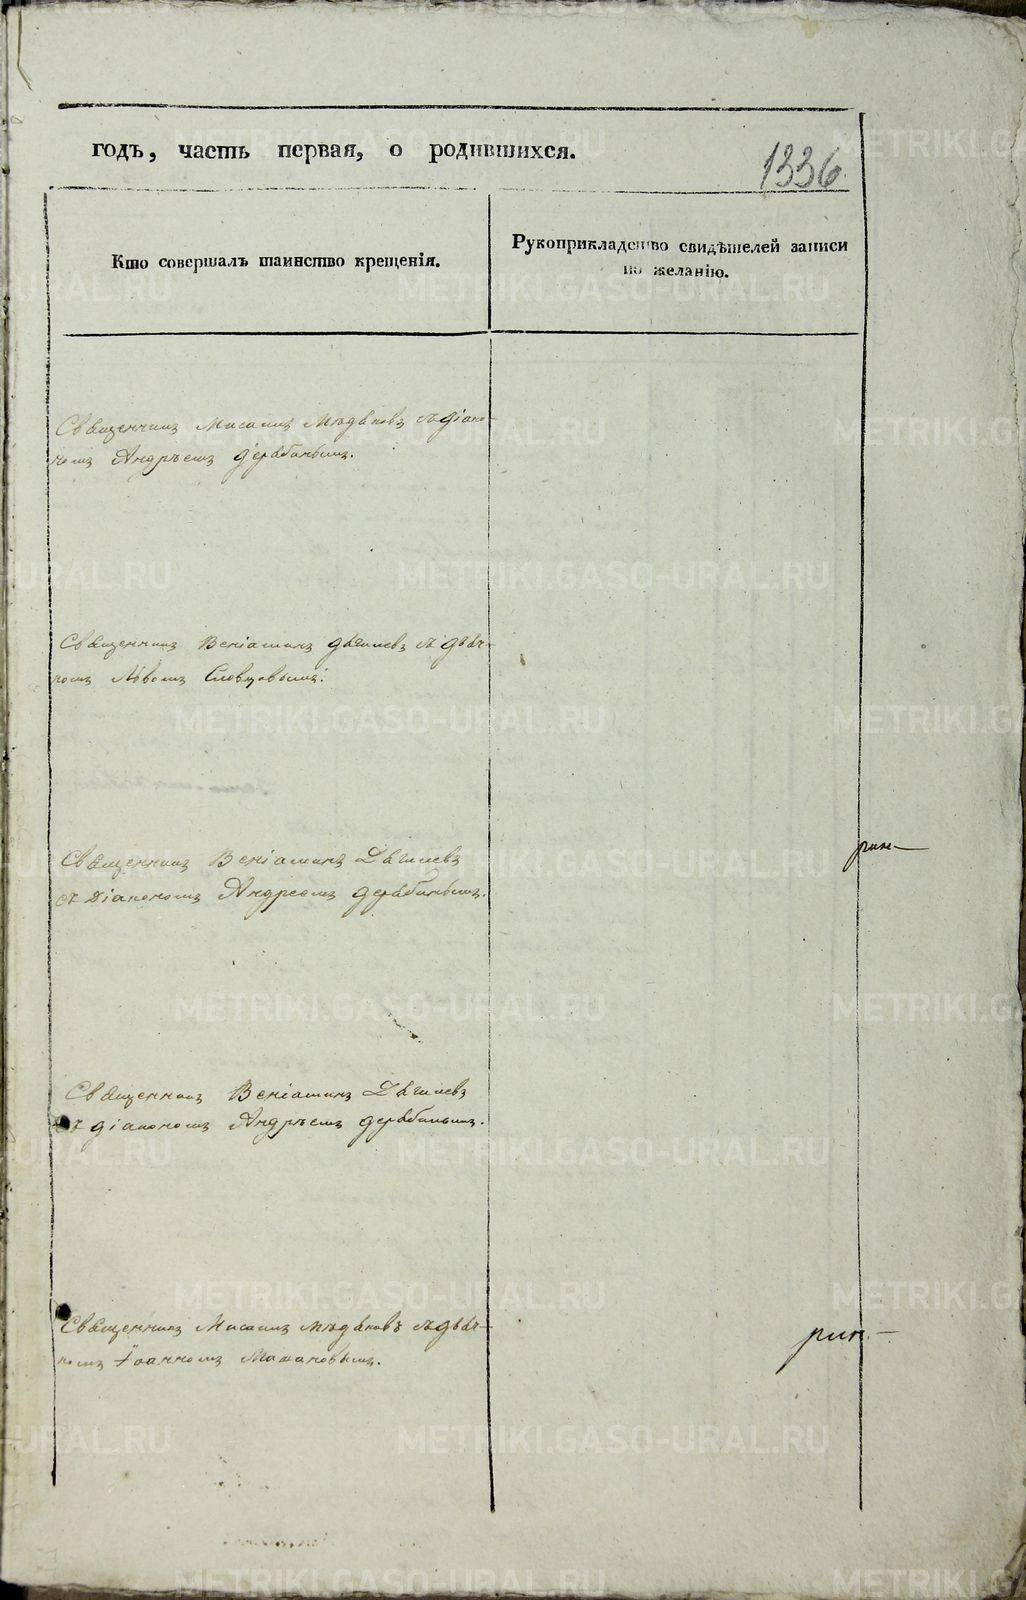 годъ, часть первая, о родившихся.
1336
Кто совершалъ таинство крещенія.
Рукоприкладство свидѣтелей записи
по желанію.
Священникъ Мисаилъ съ діако-
номъ Андрѣемъ дерябинымъ.
Священникъ Веніаминъ дягилевъ съ дьяч-
комъ Львомъ Словцовымъ.
Священникъ Веніаминъ Дягилевъ
съ Діакономъ Андреемъ дерябинымъ.
Священникъ Веніаминъ Дягилевъ
съ діакономъ Андрѣемъ дерябинымъ.
Священникъ Мисаилъ съ дьяч-
комъ Іоанномъ
METRIKI.GASO-URAL.RU